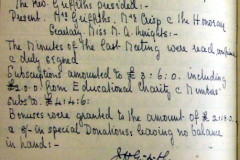 The Rev. Griffiths presided:-
Present. Mrs Griffiths, Mrs Crisp & the Honorary
Secretary Miss M. A. Knights:-
The Minutes of the Last Meeting were read confirmed
& duly signed
Subscriptions amounted to £3:6:0. including
from Educational Charity & Members
Subs: to £4:4:6:
Bonuses were granted to the amount of
a in special Donations leaving no balance
in hand:-